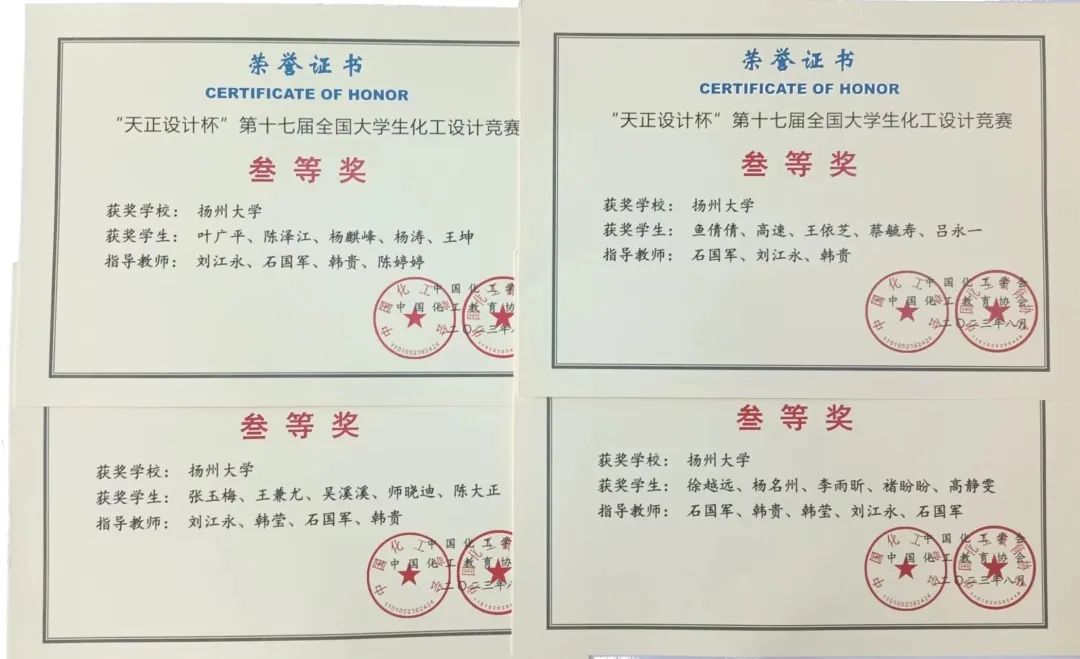 荣誉证书
CERTIFICATE OF HONOR
“天正设计杯”第十七届全国大学生化工设计竞赛
叁等奖
获奖学校： 扬州大学
获奖学生： 叶广平、陈泽江、杨麒峰、杨涛、王坤
指导教师： 刘江永、石国军、韩贵、陈婷婷
中国化工学
中国化工教育协
二〇二三年
荣誉证书
CERTIFICATE OF HONOR
“天正设计杯”第十七届全国大学生化工设计竞赛
叁等奖
获奖学校： 扬州大学
获奖学生： 鱼倩倩、高速、王依芝、蔡毓寿、吕永一
指导教师： 石国军、刘江永、韩贵
中国化工学会
中国化工教育协会
二〇二三年八月
叁等奖
获奖学校： 扬州大学
获奖学生： 张玉梅、王兼尤、吴溪溪、师晓迪、陈大正
指导教师： 刘江永、韩莹、石国军、韩贵
中国化工学
中国化工教育协
二〇二三年
叁等奖
获奖学校： 扬州大学
获奖学生： 徐越远、杨名州、李雨昕、褚盼盼、高静雯
指导教师： 石国军、韩贵、韩莹、刘江永、石国军
中国化工学会
中国化工教育协会
二〇二三年八月